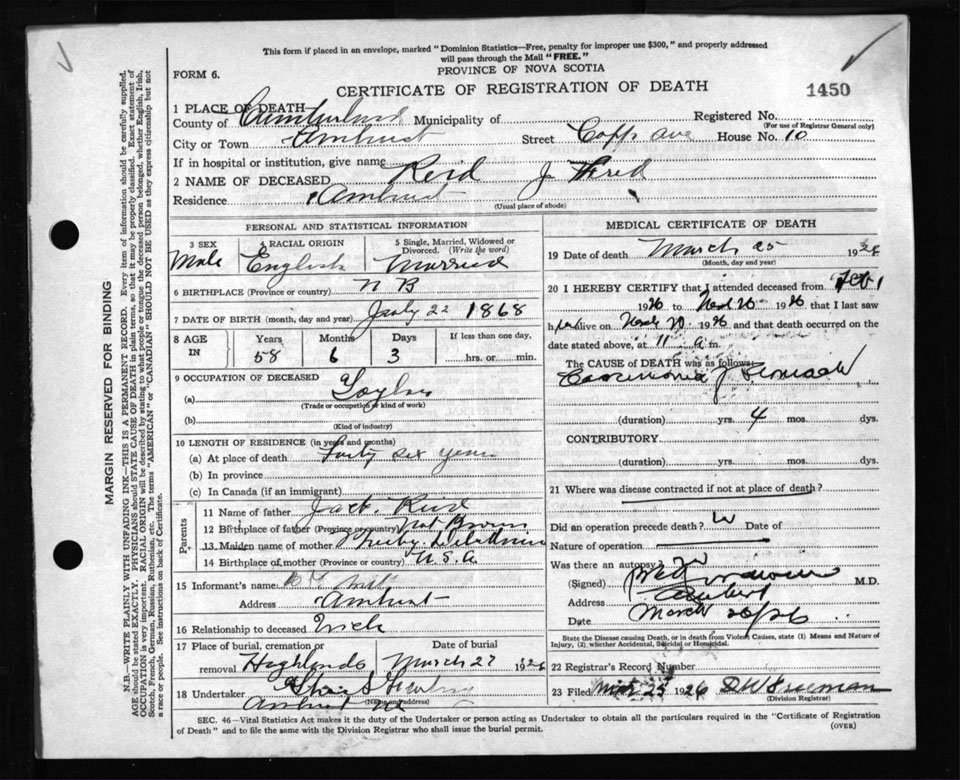 This form if placed in an envelope, marked "Dominion Statistics—Free, penalty for improper use $300," and properly addressed
will pass through the Mail "FREE."
PROVINCE OF NOVA SCOTIA
FORM 6.
CERTIFICATE OF REGISTRATION OF DEATH
1450
1 PLACE OF DEATH
County of Cumberland Municipality of Registered No.
(For use of Registrar General only)
City or Town Amherst Street Copp Ave House No. 10
If in hospital or institution, give name
2 NAME OF DECEASED Reid J. Fred
Residence Amherst
(Usual place of abode)
PERSONAL AND STATISTICAL INFORMATION
3 SEX Male
4 RACIAL ORIGIN English
5 Single, Married, Widowed or Divorced. (Write the word) Married
6 BIRTHPLACE (Province or country) N B
7 DATE OF BIRTH (month, day and year) July 22 1868
8 AGE IN Years 58 Months 6 Days 3 If less than one day, hrs. or min.
9 OCCUPATION OF DECEASED
(a)
(Trade or occupation or kind of work)
(b)
(Kind of industry)
10 LENGTH OF RESIDENCE (in years and months)
(a) At place of death Forty six years
(b) In province
(c) In Canada (if an immigrant)
Parents
11 Name of father Reid
12 Birthplace of father (Province or country)
13 Maiden name of mother
14 Birthplace of mother U.S.A
15 Informant's name
Address Amherst
16 Relationship to deceased
17 Place of burial, cremation or removal Highlands Date of burial March 27 1926
18 Undertaker
Amherst
(Name and address)
MEDICAL CERTIFICATE OF DEATH
19 Date of death March 25 1926
(Month, day and year)
20 I HEREBY CERTIFY that I attended deceased from Feb 1
1926 to 20 1926 that I last saw
h alive on 20 1926 and that death occurred on the
date stated above, at 11 a m.
The CAUSE OF DEATH was as follows:
Carcinoma of Stomach
(duration) yrs. 4 mos. dys.
CONTRIBUTORY
(duration) yrs. mos. dys.
21 Where was disease contracted if not at place of death?
Did an operation precede death? Date of
Nature of operation
Was there an autopsy?
(Signed) M.D.
Address Amherst
Date March 26/26
State the Disease causing Death, or in death from Violent Causes, state (1) Means and Nature of
Injury, (2) whether Accidental, Suicidal or Homicidal.
22 Registrar's Record Number
23 Filed Mar 25 1926 D W Freeman
(Division Registrar)
SEC. 46—Vital Statistics Act makes it the duty of the Undertaker or person acting as Undertaker to obtain all the particulars required in the "Certificate of Registration
of Death" and to file the same with the Division Registrar who shall issue the burial permit.
(OVER)
MARGIN RESERVED FOR BINDING
N.B.—WRITE PLAINLY WITH UNFADING INK—THIS IS A PERMANENT RECORD. Every item of information should be carefully supplied.
AGE should be stated EXACTLY. PHYSICIANS should STATE CAUSE OF DEATH in plain terms, so that it may be properly classified. Exact statement of
OCCUPATION is very important. RACIAL ORIGIN will be described by stating to what people or tongue the deceased person belonged, whether English, Irish,
Scotch, French, German, Russian, Ruthenian, etc. The terms "AMERICAN" or "CANADIAN" SHOULD NOT BE USED as they express citizenship but not
a race or people. See instructions on back of Certificate.